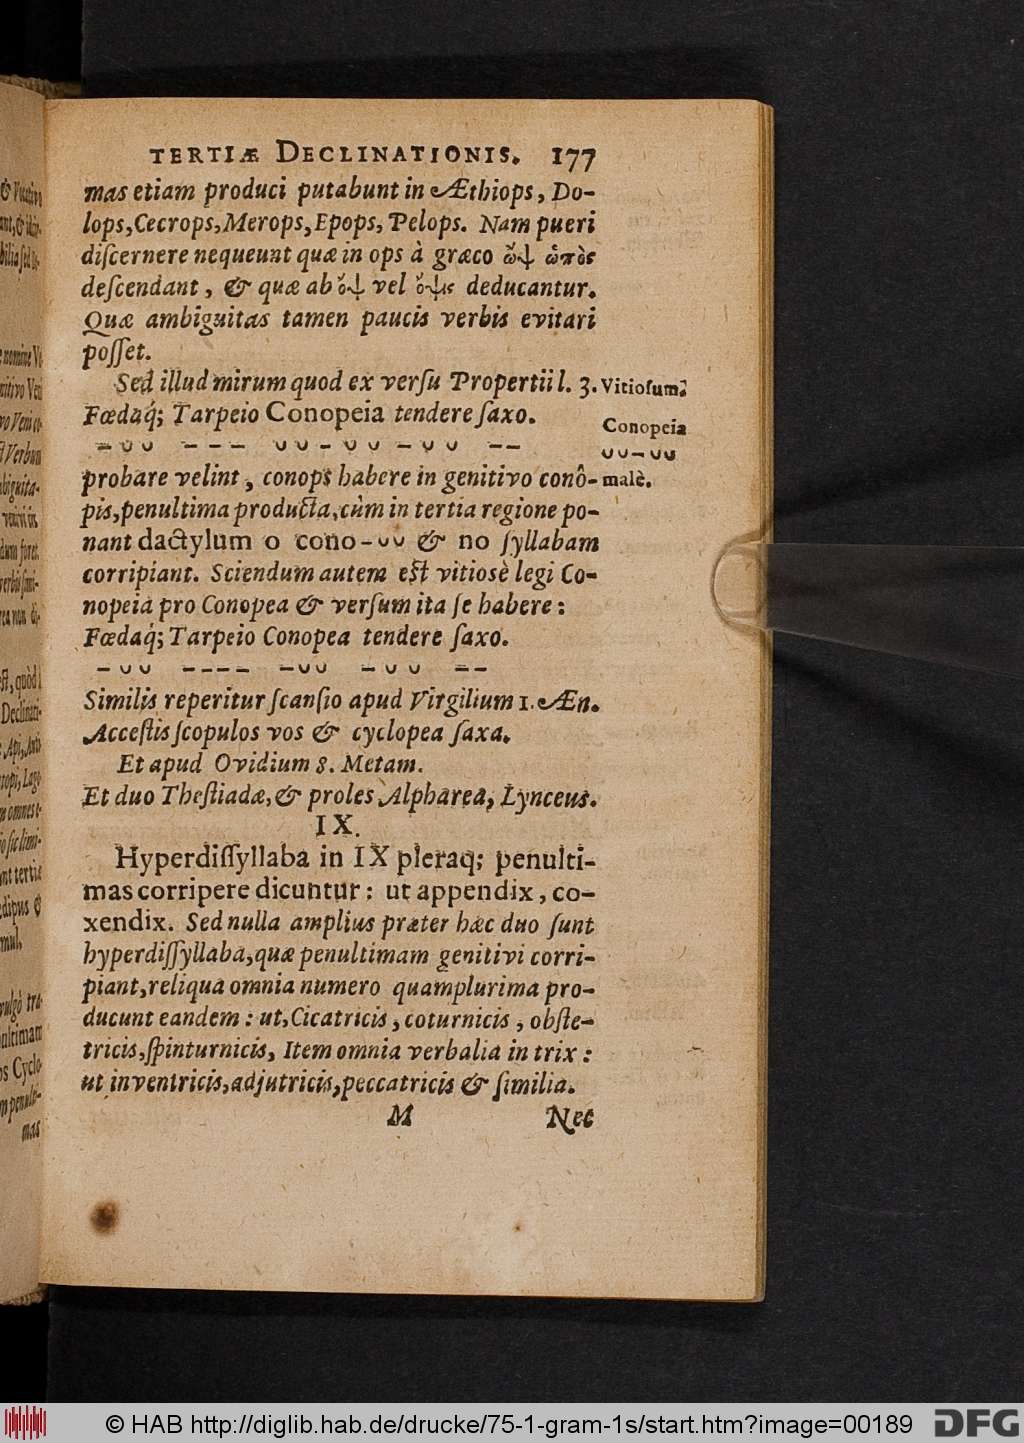 TERTIÆ DECLINATIONIS. 177
mas etiam produci putabunt in Æthiops, Do-
lops, Cecrops, Merops, Epops, Pelops. Nam pueri
diſcernere nequeunt quæ in ops à græco ὤψ ὠπὸς
deſcendant, & quæ ab ὄψ vel ὄψις deducantur.
Quæ ambiguitas tamen paucis verbis evitari
poſſet.
Sed illud mirum quod ex verſu Propertii l. 3.
Vitioſum:
Fœdaq́; Tarpeio Conopeia tendere ſaxo.
Conopeia
– ᴗ ᴗ – – – ᴗ ᴗ – ᴗ ᴗ – ᴗ ᴗ – –
ᴗ ᴗ – ᴗ ᴗ
probare velint, conops habere in genitivo conô-
malè.
pis, penultima producta, cùm in tertia regione po-
nant dactylum o cono – ᴗ ᴗ & no ſyllabam
corripiant. Sciendum autem eſt vitiosè legi Co-
nopeia pro Conopea & verſum ita ſe habere:
Fœdaq́; Tarpeio Conopea tendere ſaxo.
– ᴗ ᴗ – – – – – ᴗ ᴗ – ᴗ ᴗ – –
Similis reperitur ſcanſio apud Virgilium 1. Æn.
Acceſtis ſcopulos vos & cyclopea ſaxa.
Et apud Ovidium 8. Metam.
Et duo Theſtiadæ, & proles Alpharea, Lynceus.
IX.
Hyperdiſſyllaba in IX pleraq; penulti-
mas corripere dicuntur: ut appendix, co-
xendix. Sed nulla amplius præter hæc duo ſunt
hyperdiſſyllaba, quæ penultimam genitivi corri-
piant, reliqua omnia numero quamplurima pro-
ducunt eandem: ut, Cicatricis, coturnicis, obſte-
tricis, ſpinturnicis, Item omnia verbalia in trix:
ut inventricis, adjutricis, peccatricis & ſimilia.
M Nec
© HAB http://diglib.hab.de/drucke/75-1-gram-1s/start.htm?image=00189
DFG